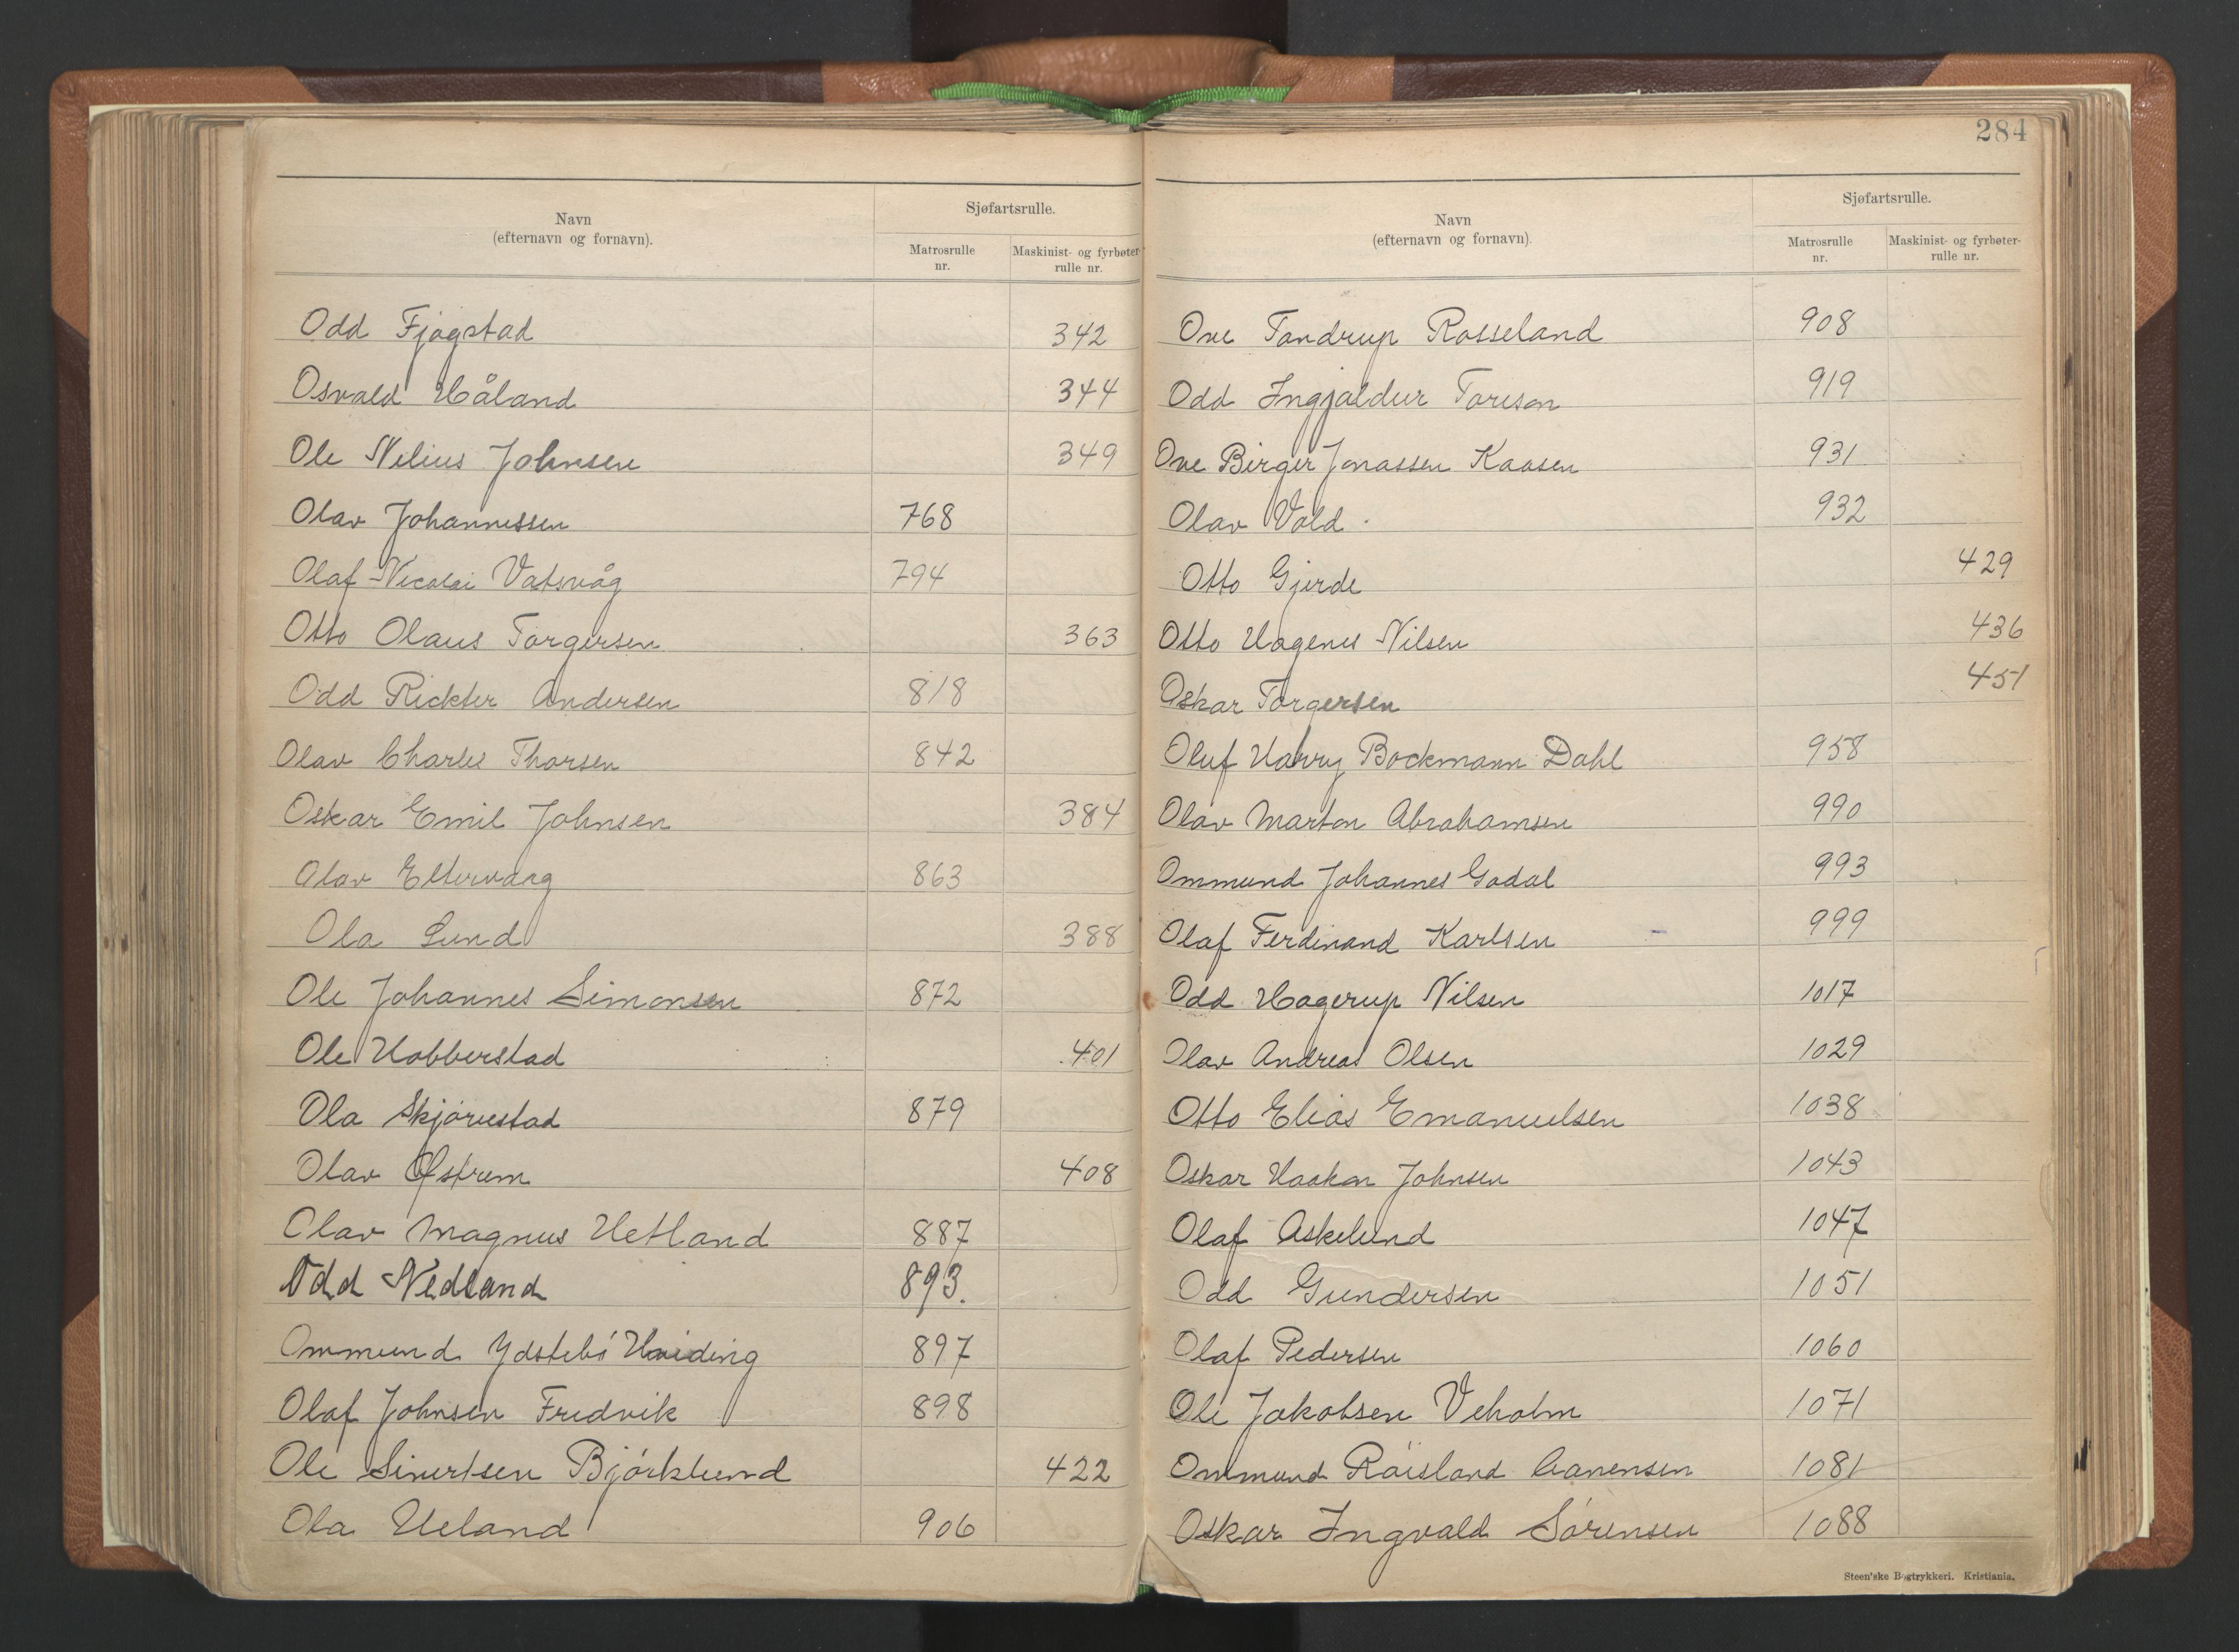 Navn
(efternavn og fornavn).
Sjøfartsrulle.
Matrosrulle nr.
Maskinist- og fyrbøter- rulle nr.
Odd Fjogstad 342
Osvald Håland 344
Ole Nelius Johnsen 349
Olav Johannessen 768
Olaf Nicolai Vatsvåg 794
Otto Olaus Torgersen 363
Odd Rickter Andersen 818
Olav Charles Thorsen 842
Oskar Emil Johnsen 384
Olav Eltervaag 863
Ola Lund 388
Ole Johannes Simonsen 872
Ole Hobberstad 401
Ola Skjørestad 879
Olav Østrem 408
Olav Magnus Hetland 887
Odd Nedland 893.
Ommund Ydstebö Hviding 897
Olaf Johnsen Fredvik 898
Ole Sivertsen Björklund 422
Ola Ueland 906
284
Navn
(efternavn og fornavn).
Sjøfartsrulle.
Matrosrulle nr.
Maskinist- og fyrbøter- rulle nr.
Ove Tandrup Rosseland 908
Odd Ingjaldur Toresen 919
Ove Birger Jonassen Kaasen 931
Olav Vold 932
Otto Gjerde 429
Otto Hagenes Nilsen 436
Oskar Torgersen 451
Oluf Harry Bockmann Dahl 958
Olav Marton Abrahamsen 990
Ommund Johannes Godal 993
Olaf Ferdinand Karlsen 999
Odd Hagerup Nilsen 1017
Olav Andreas Olsen 1029
Otto Elias Emanuelsen 1038
Oskar Haakon Johnsen 1043
Olaf Askelund 1047
Odd Gundersen 1051
Olaf Pedersen 1060
Ole Jakobsen Veholm 1071
Ommund Röisland Aanensen 1081
Oskar Ingvald Sörensen 1088
Steen'ske Bogtrykkeri. Kristiania.